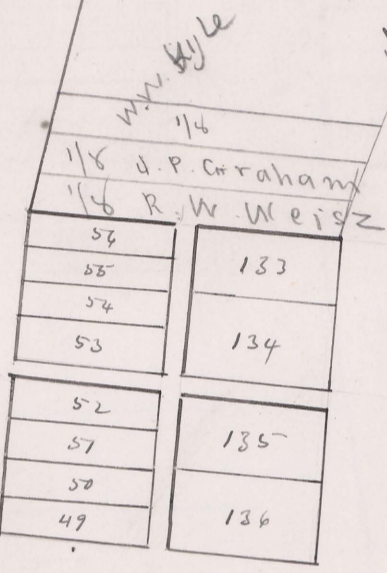 W.W. Kyle
1/8
1/8 J.P. Graham
1/8 R.W. Weisz
56
55
54
53
133
134
52
51
50
49
135
136